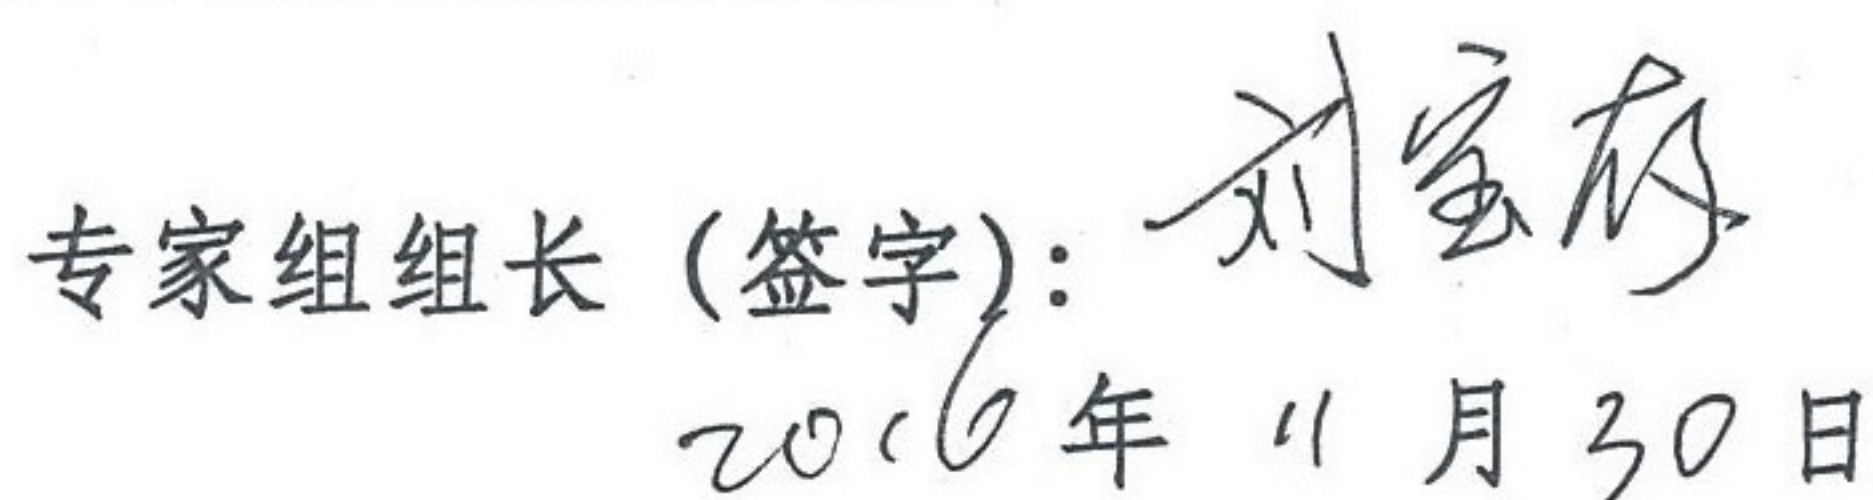 专家组组长（签字）：刘宝存
2016年 11 月 30 日